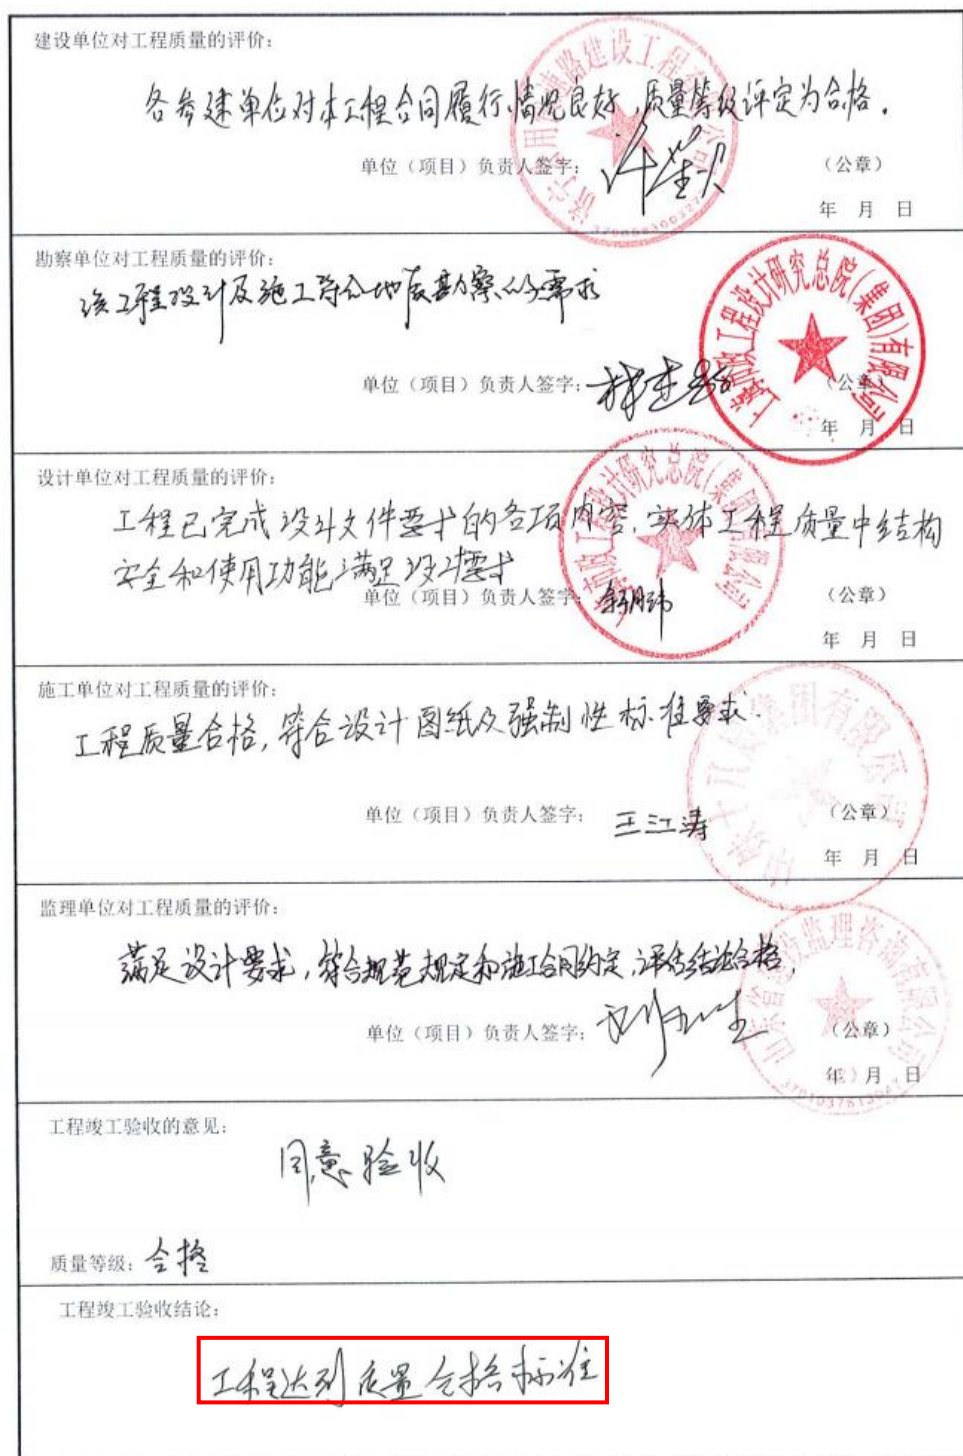 建设单位对工程质量的评价：
各参建单位对本工程合同履行情况良好，质量等级评定为合格。
单位（项目）负责人签字：
（公章）
年 月 日
勘察单位对工程质量的评价：
该工程设计及施工符合地质勘察的需求
单位（项目）负责人签字：
（公章）
年 月 日
工程设计研究总院（集团）有限公司
设计单位对工程质量的评价：
工程已完成设计文件要求的各项内容，实体工程质量中结构
安全和使用功能满足设计要求
单位（项目）负责人签字：
（公章）
年 月 日
施工单位对工程质量的评价：
工程质量合格，符合设计图纸及强制性标准要求.
单位（项目）负责人签字：王江涛
（公章）
年 月 日
监理单位对工程质量的评价：
满足设计要求，符合规范规定和施工合同约定，评估结论合格。
单位（项目）负责人签字：
（公章）
年 月 日
工程竣工验收的意见：
同意验收
质量等级：合格
工程竣工验收结论：
工程达到质量合格标准